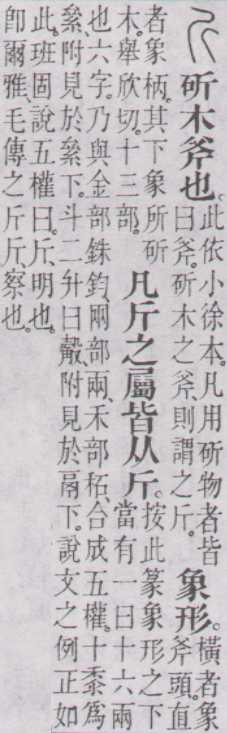 斫木斧也。
此依小徐本。凡用斫物者皆
曰斧。斫木之斧、則謂之斤。
象形。
橫者象
斧頭。直
者象柄。其下象所斫
木。舉欣切。十三部。
凡斤之屬皆从斤。
按此篆象形之下
當有一曰十六兩
也六字。乃與金部銖鈞、㒳部兩、禾部䄷、合成五權。十黍爲
絫、附見於絫下。斗二升曰觳、附見於鬲下。說文之例正如
此。班固說五權曰。斤、明也。
卽爾雅、毛傳之斤斤、察也。